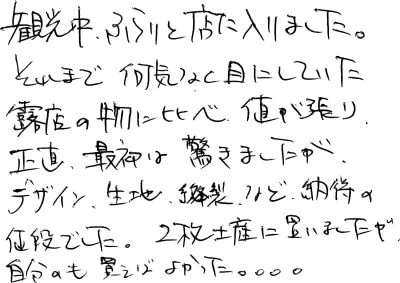 観光中、ふらりと店に入りました。
それまで何気なく目にしていた
露店の物に比べ、値が張り、
正直、最初は驚きましたが、
デザイン、生地、縫製、など、納得の
値段でした。2枚土産に買いましたが、
自分のも買えばよかった。。。。